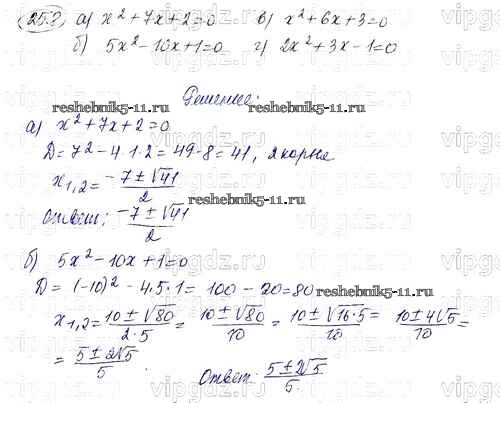 25.? а) x² + 7x + 2 = 0 в) x² + 6x + 3 = 0
б) 5x² - 10x + 1 = 0 г) 2x² + 3x - 1 = 0
Решение:
reshebnik5-11.ru reshebnik5-11.ru
а) x² + 7x + 2 = 0
D = 7² - 4·1·2 = 49 - 8 = 41, 2 корня
x₁,₂ = (-7 ± √41)/2
reshebnik5-11.ru
Ответ: (-7 ± √41)/2
б) 5x² - 10x + 1 = 0
D = (-10)² - 4·5·1 = 100 - 20 = 80
reshebnik5-11.ru
x₁,₂ = (10 ± √80)/(2·5) = (10 ± √80)/10 = (10 ± √16·5)/10 = (10 ± 4√5)/10 =
= (5 ± 2√5)/5
Ответ: (5 ± 2√5)/5
vipgdz.ru